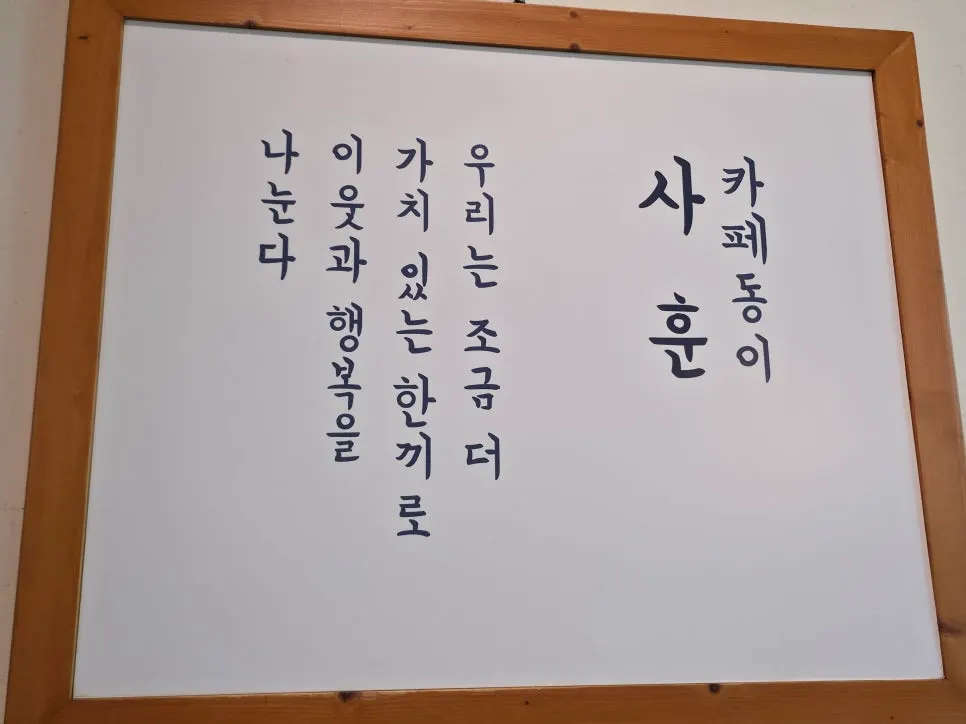 카페동이
사훈
우리는 조금 더
가치 있는 한끼로
이웃과 행복을
나눈다